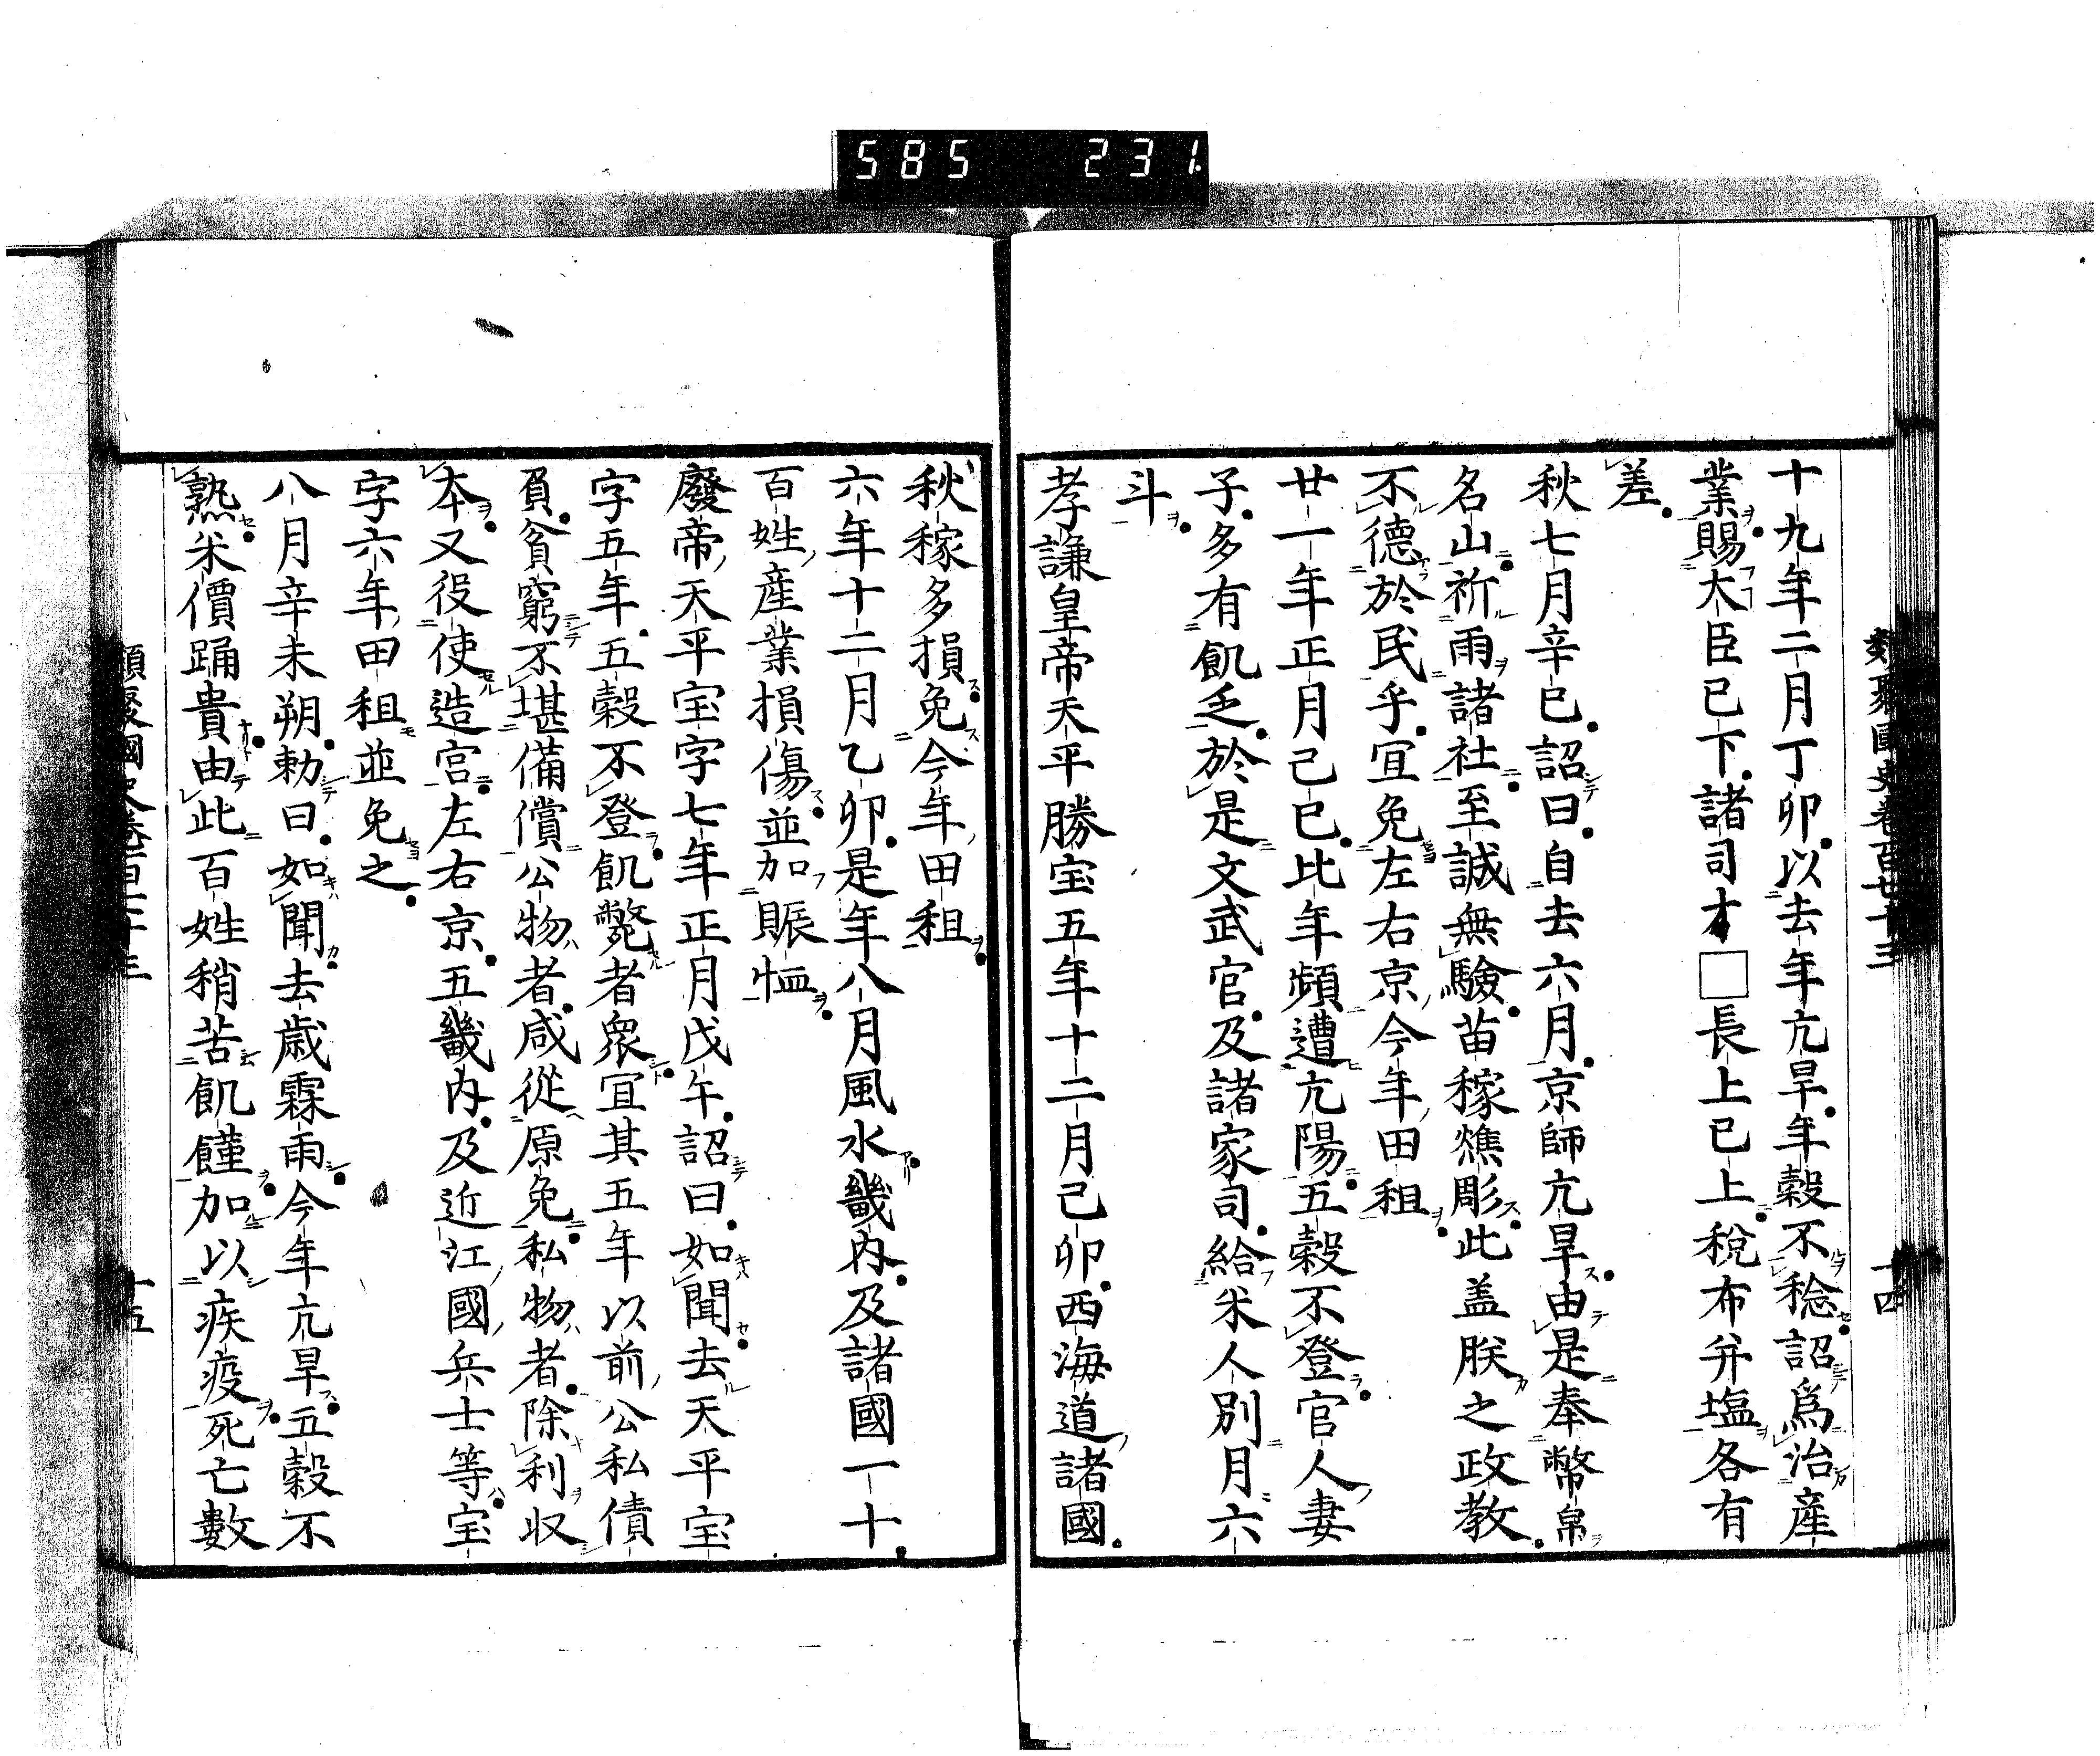 585 231
類聚國史卷百七十三
十四
十九年二月丁卯以去年亢旱年穀不稔詔爲治産
業賜大臣已下諸司才□長上已上税布并塩各有
差
秋七月辛巳詔曰自去六月京師亢旱由是奉幣帛
名山祈雨諸社至誠無驗苗稼燋彫此盖朕之政教
不德於民乎宜免左右京今年田租
廿一年正月己巳比年頻遭亢陽五穀不登官人妻
子多有飢乏於是文武官及諸家司給米人別月六
斗
孝謙皇帝天平勝宝五年十二月己卯西海道諸國
秋稼多損免今年田租
六年十二月乙卯是年八月風水畿内及諸國一十
百姓産業損傷並加賑恤
廢帝天平宝字七年正月戊午詔曰如聞去天平宝
字五年五穀不登飢斃者衆宜其五年以前公私債
負貧窮不堪備償公物者咸從原免私物者除利収
本又役使造宮左右京五畿内及近江國兵士等宝
字六年田租並免之
八月辛未朔勅曰如聞去歳霖雨今年亢旱五穀不
熟米價踊貴由此百姓稍苦飢饉加以疾疫死亡數
類聚國史卷百七十三
十五